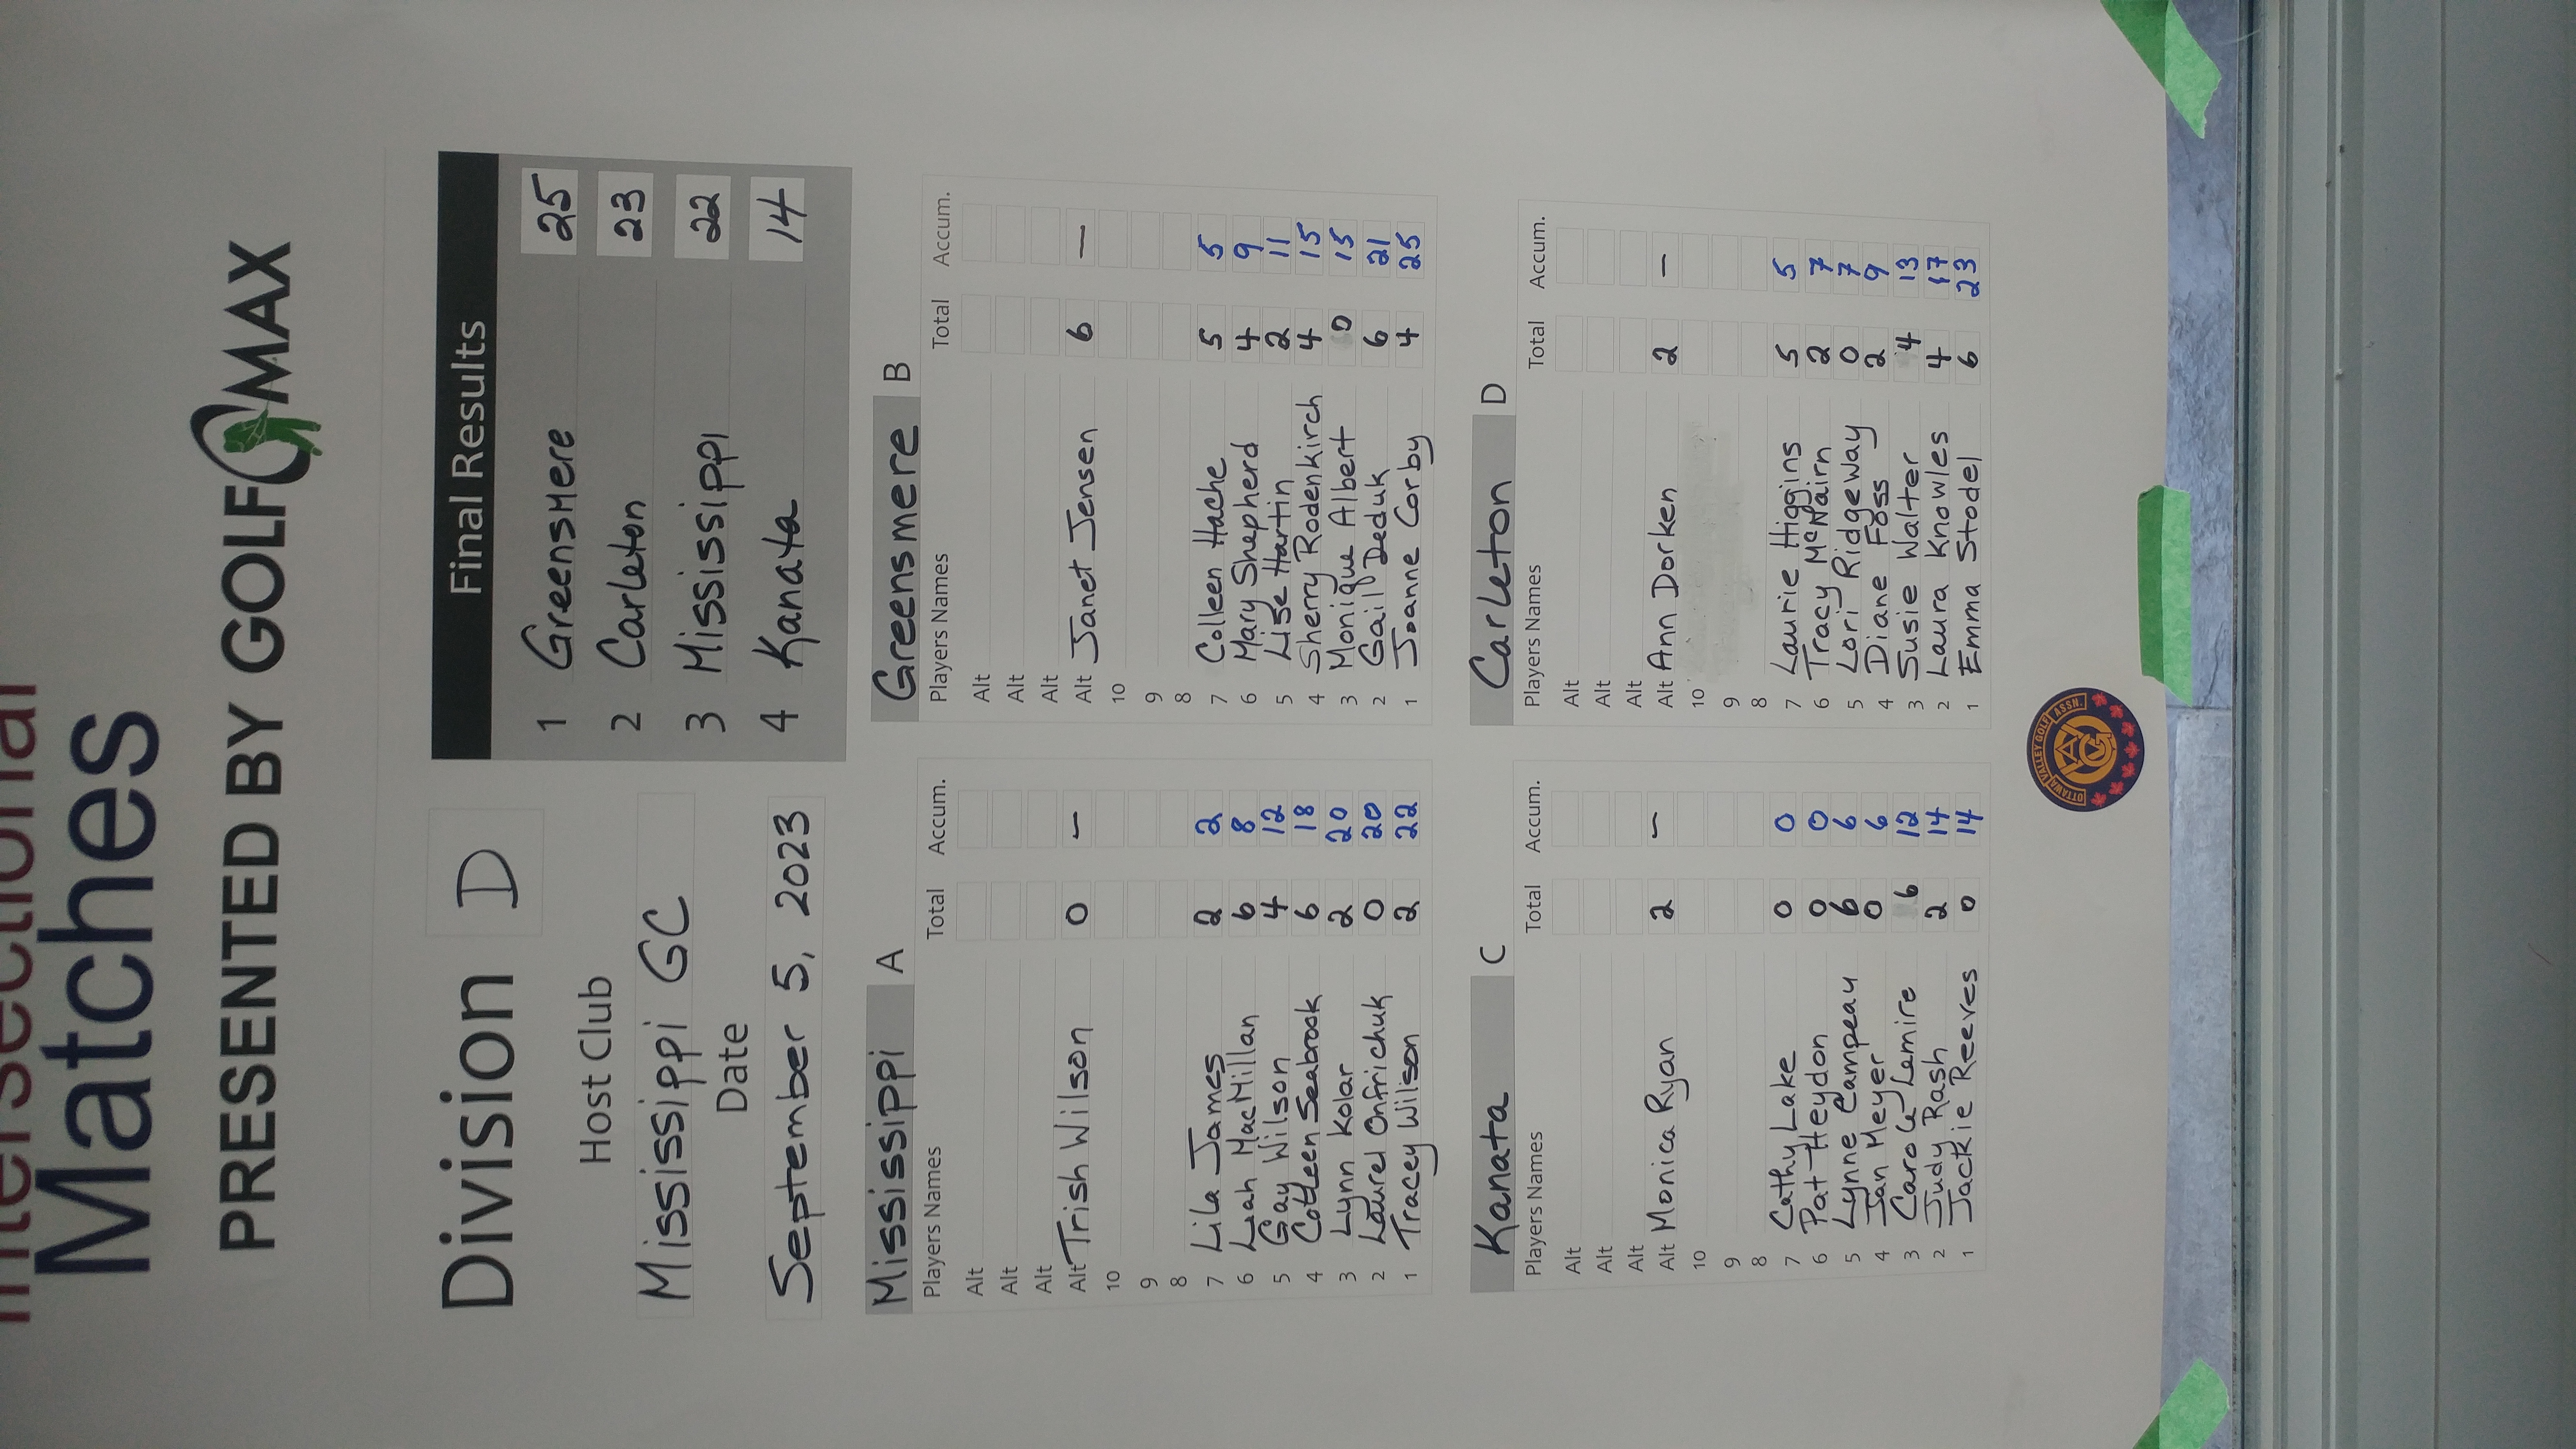 Intersectional
Matches
PRESENTED BY GOLFMAX
Division D
Host Club
Mississippi GC
Date
September 5, 2023
Final Results
1 Greensmere 25
2 Carleton 23
3 Mississippi 22
4 Kanata 14
Mississippi A
Players Names Total Accum.
Alt
Alt
Alt
Alt Trish Wilson 0 –
10
9
8
7 Lila James 2 2
6 Leah MacMillan 6 8
5 Gay Wilson 4 12
4 Colleen Seabrook 6 18
3 Lynn Kolar 2 20
2 Laurel Onfrichuk 0 20
1 Tracey Wilson 2 22
Greensmere B
Players Names Total Accum.
Alt
Alt
Alt
Alt Janet Jensen 6 –
10
9
8
7 Colleen Hache 5 5
6 Mary Shepherd 4 9
5 Lise Hartin 2 11
4 Sherry Rodenkirch 4 15
3 Monique Albert 0 15
2 Gail Deduk 6 21
1 Joanne Corby 4 25
Kanata C
Players Names Total Accum.
Alt
Alt
Alt
Alt Monica Ryan 2 –
10
9
8
7 Cathy Lake 0 0
6 Pat Heydon 0 0
5 Lynne Campeau 6 6
4 Jan Meyer 0 6
3 Carole Lemire 6 12
2 Judy Rash 2 14
1 Jackie Reeves 0 14
Carleton D
Players Names Total Accum.
Alt
Alt
Alt
Alt Ann Dorken 2 –
10
9
8
7 Laurie Higgins 5 5
6 Tracy McNairn 2 7
5 Lori Ridgeway 0 7
4 Diane Foss 2 9
3 Susie Walter 4 13
2 Laura Knowles 4 17
1 Emma Stodel 6 23
OTTAWA VALLEY GOLF ASSN.